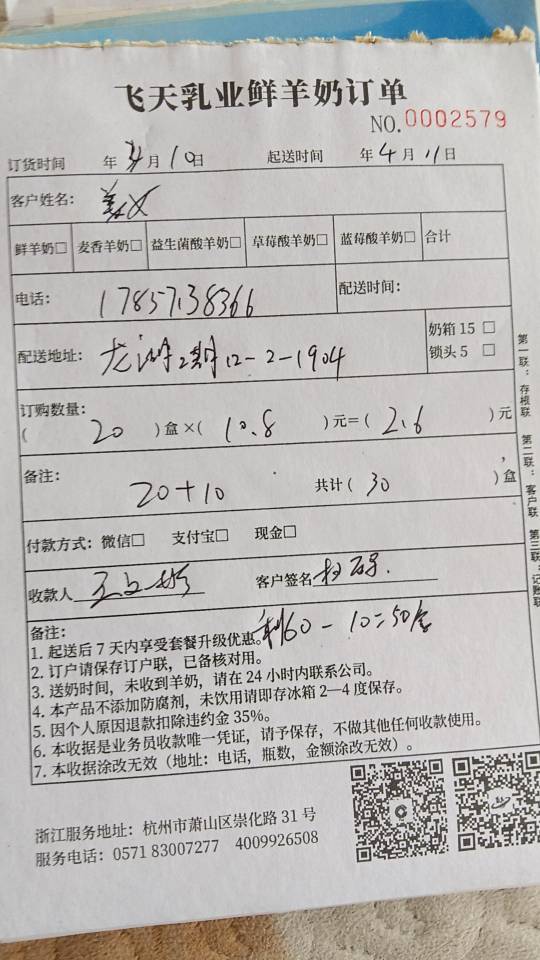 飞天乳业鲜羊奶订单
NO.0002579
订货时间 年 4月10日 起送时间 年4月11日
客户姓名：
鲜羊奶□ 麦香羊奶□ 益生菌酸羊奶□ 草莓酸羊奶□ 蓝莓酸羊奶□ 合计
电话： 17857138366 配送时间：
配送地址： 龙湖2期12-2-1904 奶箱 15 □
锁头 5 □
订购数量：
( 20 )盒×( 10.8 )元=( 2.6 )元
备注： 20+10 共计( 30 )盒
付款方式：微信□ 支付宝□ 现金□
收款人 客户签名 扫码
备注： 剩60-10=50盒
1. 起送后 7 天内享受套餐升级优惠。
2. 订户请保存订户联，已备核对用。
3. 送奶时间，未收到羊奶，请在 24 小时内联系公司。
4. 本产品不添加防腐剂，未饮用请即存冰箱 2—4 度保存。
5. 因个人原因退款扣除违约金 35%。
6. 本收据是业务员收款唯一凭证，请予保存，不做其他任何收款使用。
7. 本收据涂改无效（地址：电话，瓶数，金额涂改无效）。
浙江服务地址：杭州市萧山区崇化路 31 号
服务电话：0571 83007277 4009926508
第一联：存根联 第二联：客户联 第三联：记账联